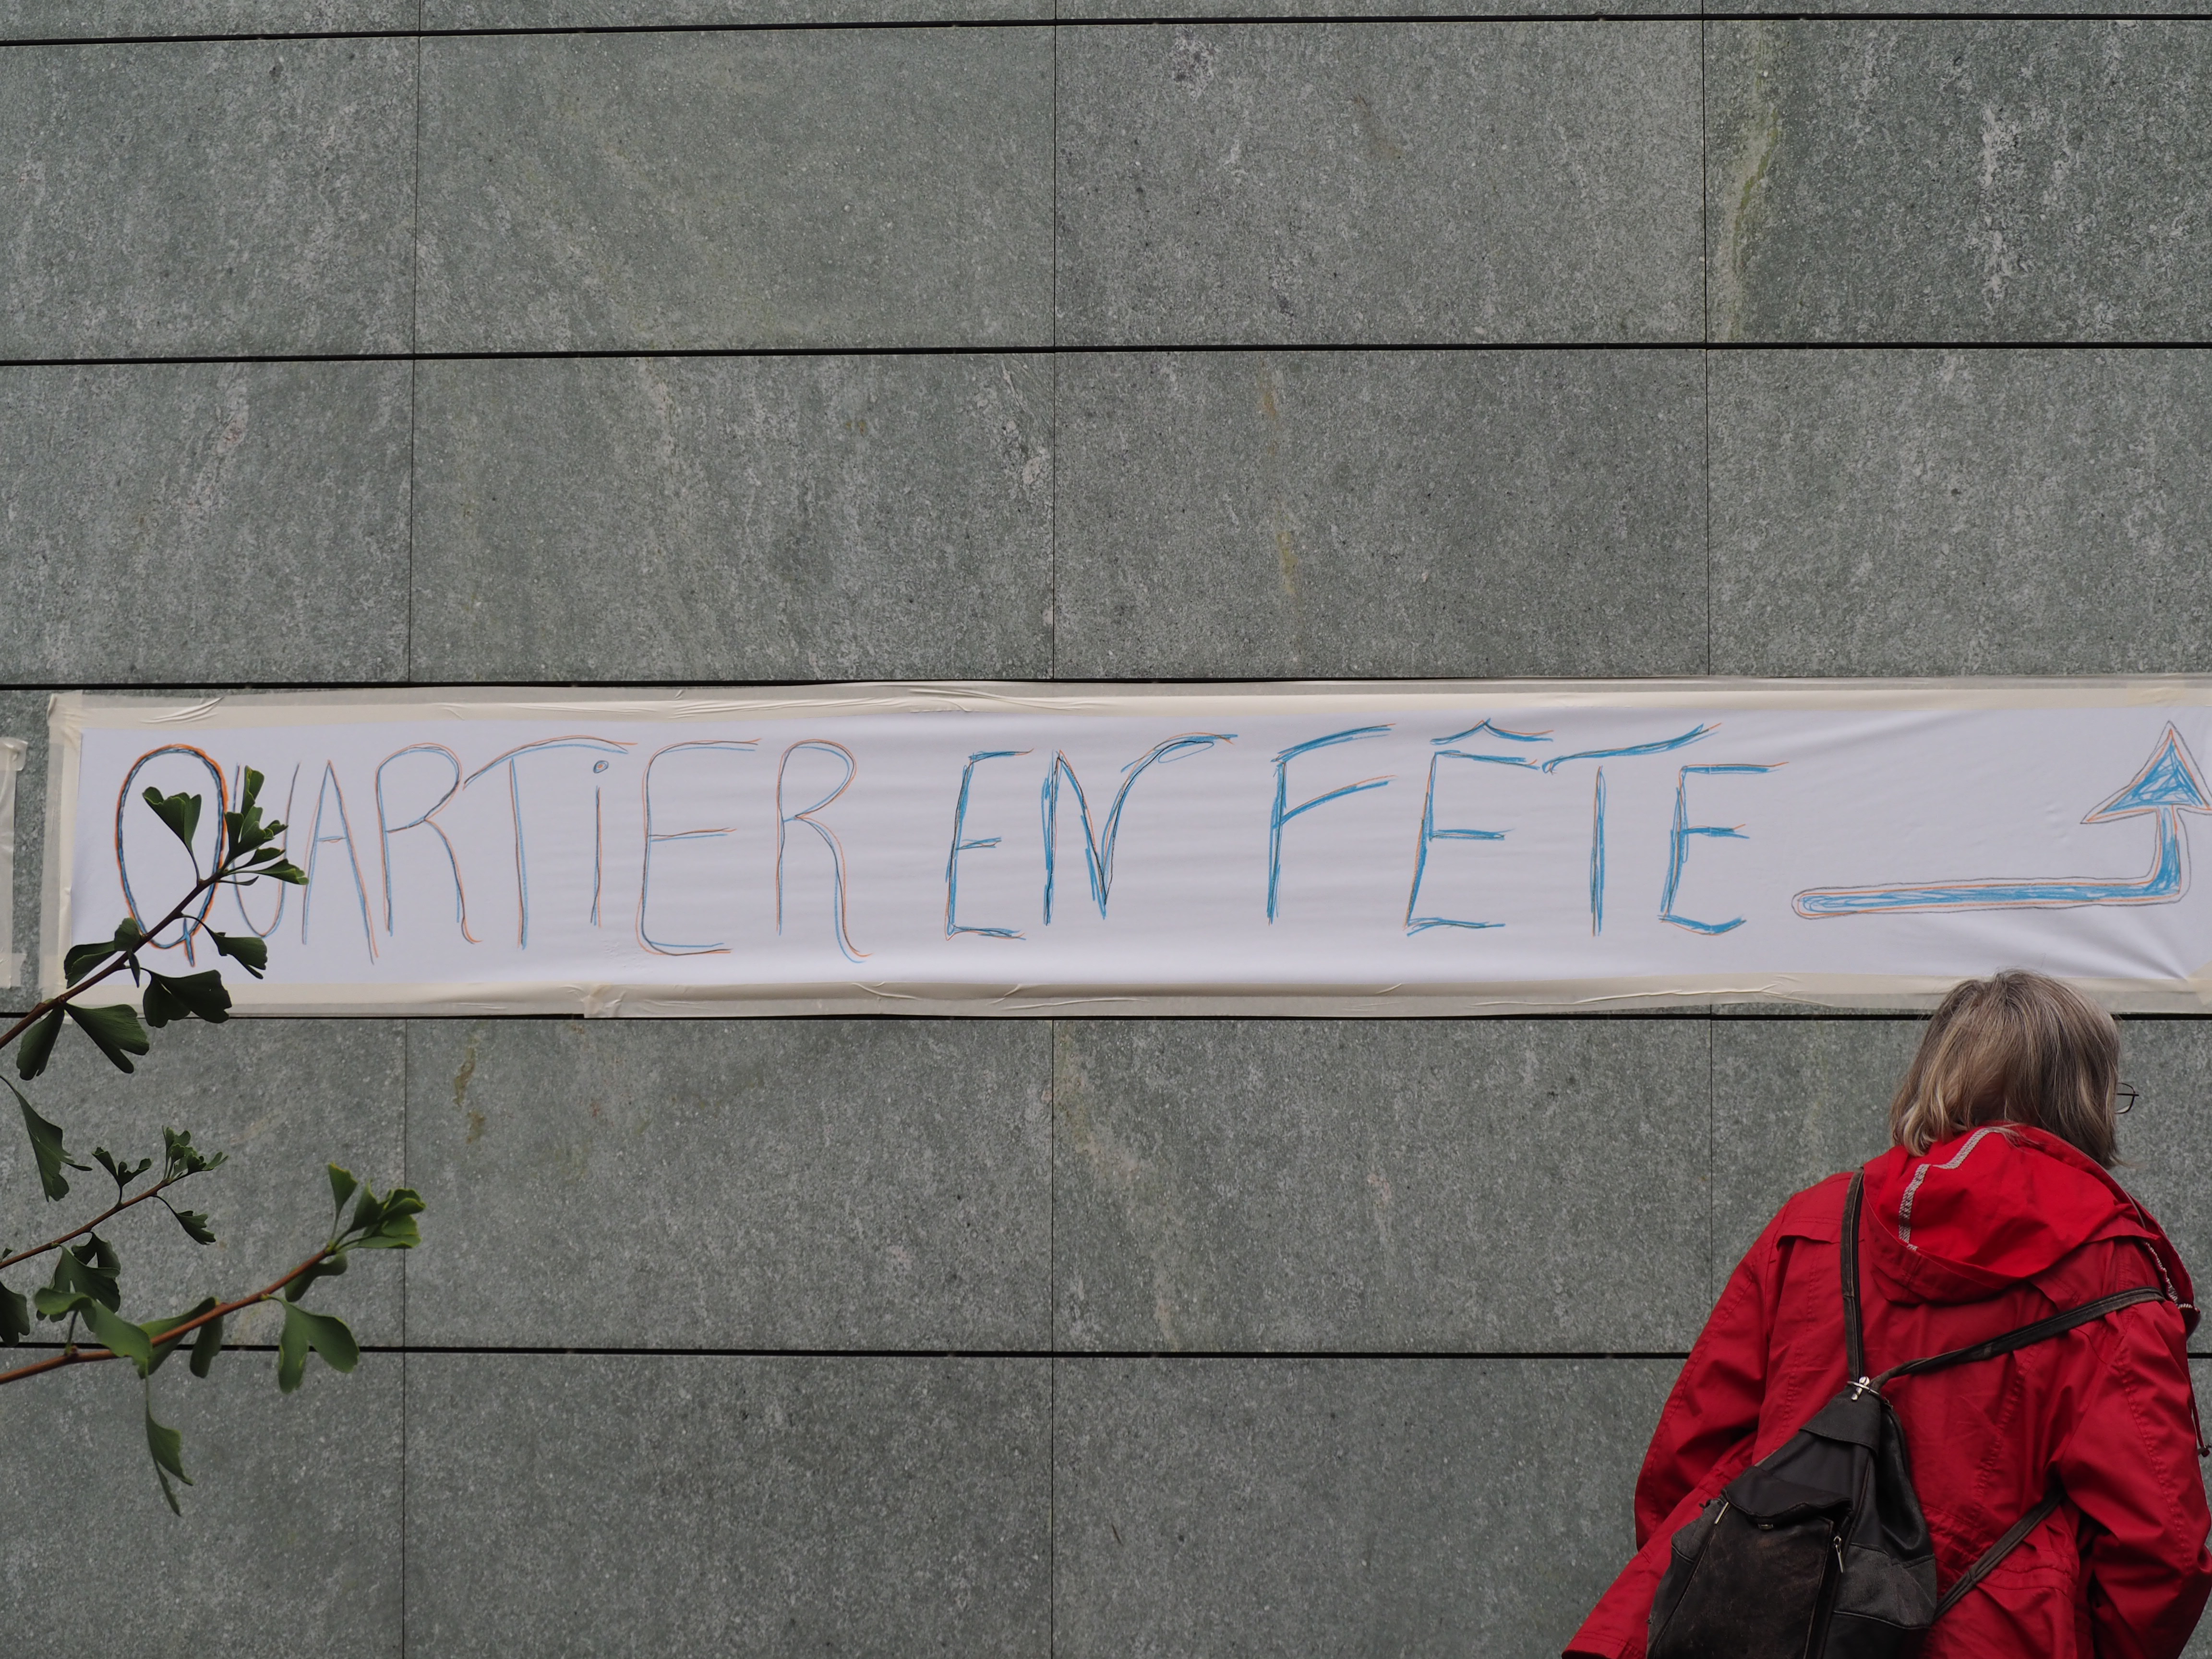 QUARTiER EN FÊTE